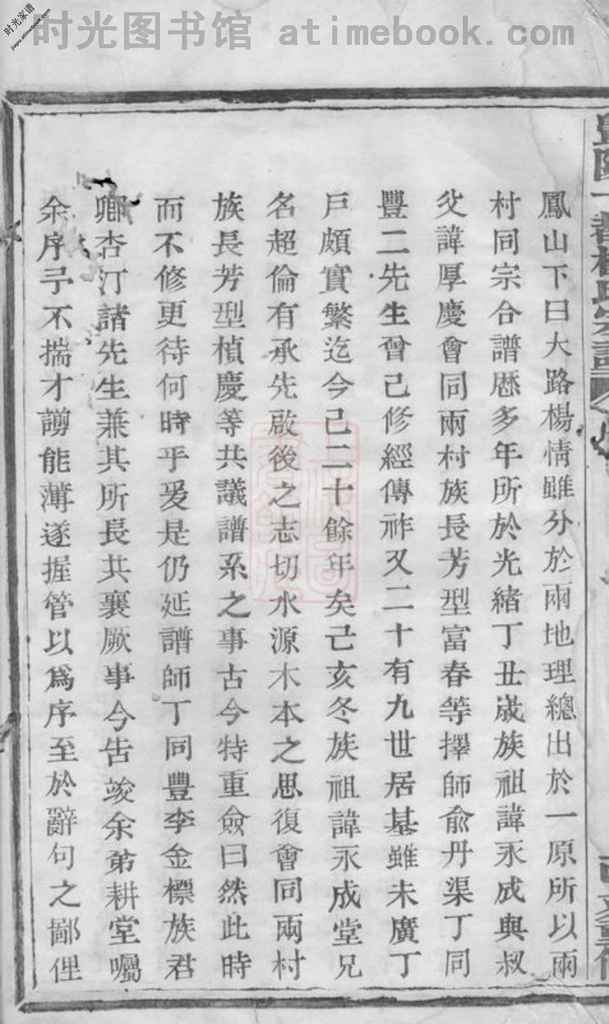 时光图书馆 atimebook.com
时光家谱
鳳山下曰大路楊情雖分於兩地理總出於一原所以兩
村同宗合譜歷多年所於光緒丁丑歲族祖諱永成與叔
父諱厚慶會同兩村族長芳型富春等擇師俞丹渠丁同
豐二先生曾已修經傳祚又二十有九世居基雖未廣丁
戶頗實繁迄今已二十餘年矣己亥冬族祖諱永成堂兄
名超倫有承先啟後之志切水源木本之思復會同兩村
族長芳型楨慶等共議譜系之事古今特重僉曰然此時
而不修更待何時乎爰是仍延譜師丁同豐李金標族君
卿杏汀諸先生兼其所長共襄厥事今告竣余弟耕堂囑
余序予不揣才謭能薄遂握管以爲序至於辭句之鄙俚